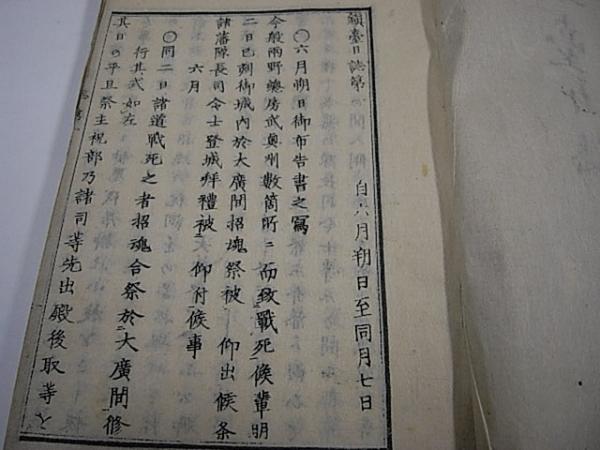 鎮臺日誌第 自六月朔日至同月七日
○六月朔日御布告書之寫
今般兩野總房武奥州數箇所ニ而致戰死候輩明
二日巳刻御城内於大廣間招魂祭被 仰出候条
諸藩隊長司令士登城拜禮被 仰付候事
六月
○同二日諸道戰死之者招魂合祭於大廣間修
行其式如左
其日の平旦祭主祝部乃諸司等先出殿後取等